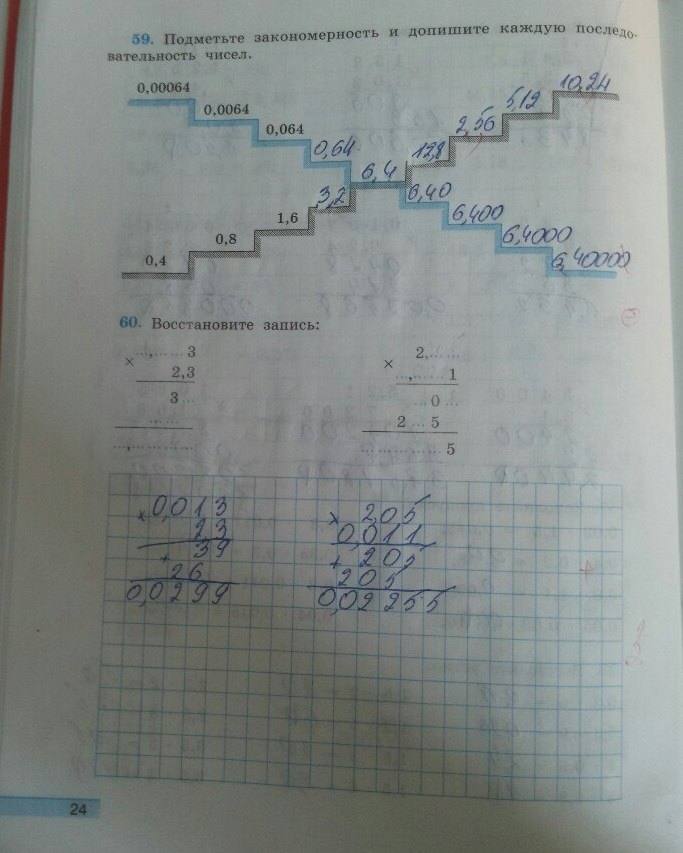 59. Подметьте закономерность и допишите каждую последо-
вательность чисел.
0,00064
0,0064
0,064
0,64
6,4
6,40
6,400
6,4000
6,40000
0,4
0,8
1,6
3,2
12,8
2,56
5,12
10,24
60. Восстановите запись:
...,...... 3
×
2,3
3 ...
... ...
...,.........
2,... ...
×
...,...... 1
... 0 ...
2 ... 5
............... 5
× 0,013
23
39
+ 26
0,0299
× 205
0,011
+ 205
205
0,02255
24